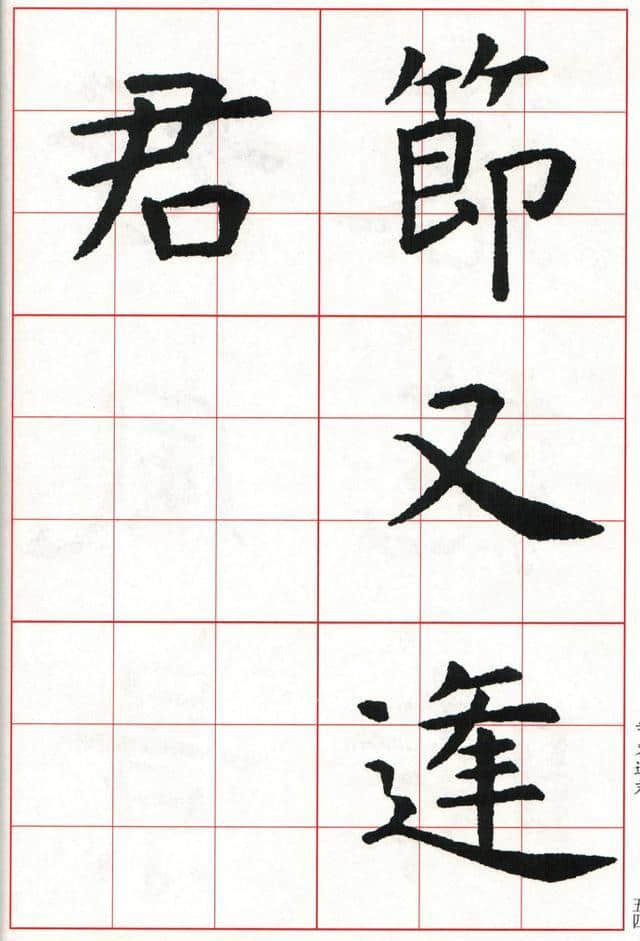 節又逢
君
五四